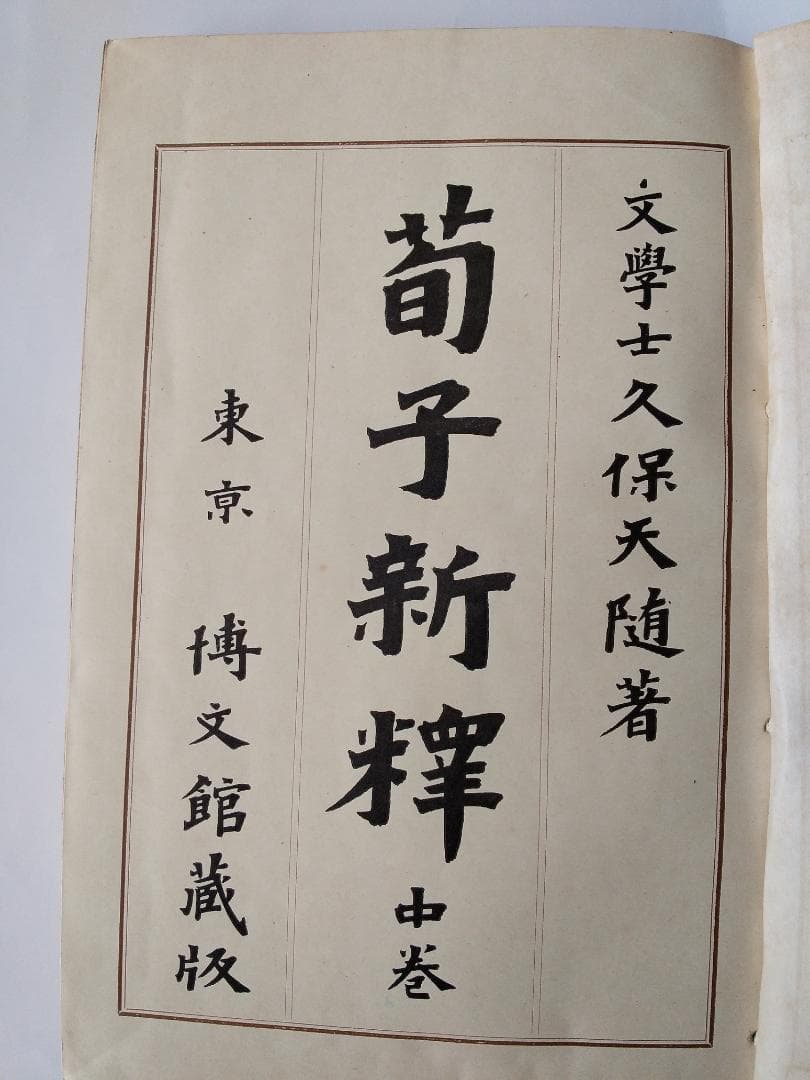 文學士久保天随著
荀子新釋中卷
東京 博文館藏版